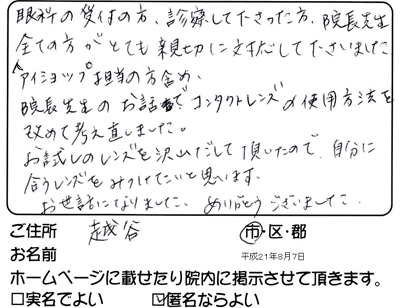 眼科の受付の方、診察して下さった方、院長先生
全ての方がとても親切に対応して下さいました
アイショップ担当の方含め、
院長先生のお話でコンタクトレンズの使用方法を
改めて考え直しました。
お試しのレンズを沢山だして頂いたので、自分に
合うレンズをみつけてたいと思います。
お世話になりました。ありがとうございました。
ご住所 越谷 市・区・郡
お名前 平成21年8月7日
ホームページに載せたり院内に掲示させて頂きます。
□実名でよい ☑匿名ならよい